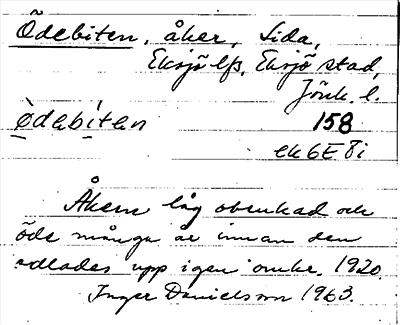 Ödebiten, åker, Sida,
Eksjö lfs, Eksjö stad,
Jönk. l.
òdabìtən 158
ek 6E 8i
Åkern låg obrukad och
öde många år innan den
odlades upp igen omkr. 1920.
Inger Danielsson 1963.